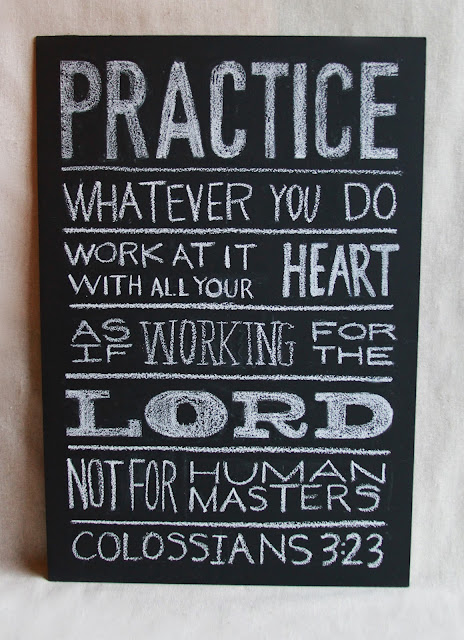 PRACTICE
WHATEVER YOU DO
WORK AT IT
WITH ALL YOUR HEART
AS IF WORKING FOR THE
LORD
NOT FOR HUMAN MASTERS
COLOSSIANS 3:23